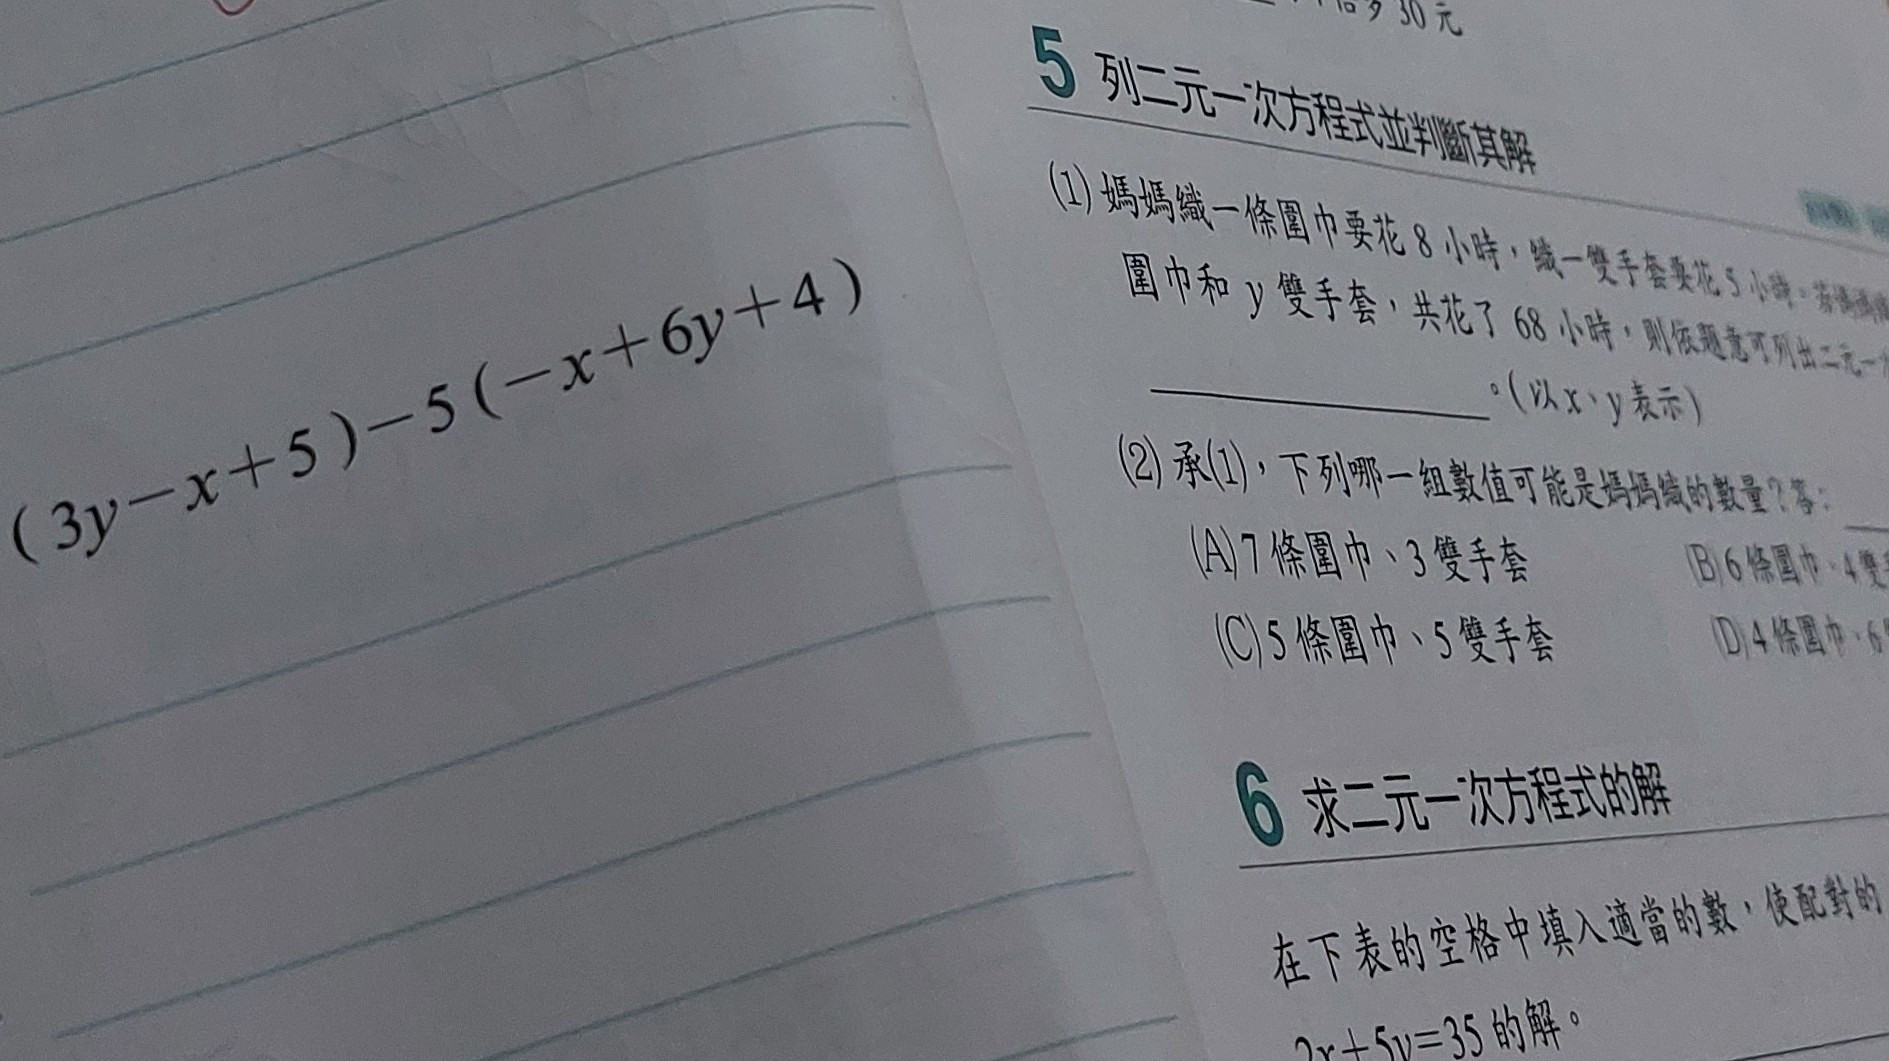 (3y－x＋5)－5(－x＋6y＋4)
30元
5 列二元一次方程式並判斷其解
(1) 媽媽織一條圍巾要花 8 小時，織一雙手套要花 5 小時。若媽媽
圍巾和 y 雙手套，共花了 68 小時，則依題意可列出二元一
。(以 x、y 表示)
(2) 承(1)，下列哪一組數值可能是媽媽織的數量？答：
(A) 7 條圍巾、3 雙手套 (B) 6 條圍巾、4 雙
(C) 5 條圍巾、5 雙手套 (D) 4 條圍巾、6
6 求二元一次方程式的解
在下表的空格中填入適當的數，使配對的
2x＋5y＝35 的解。